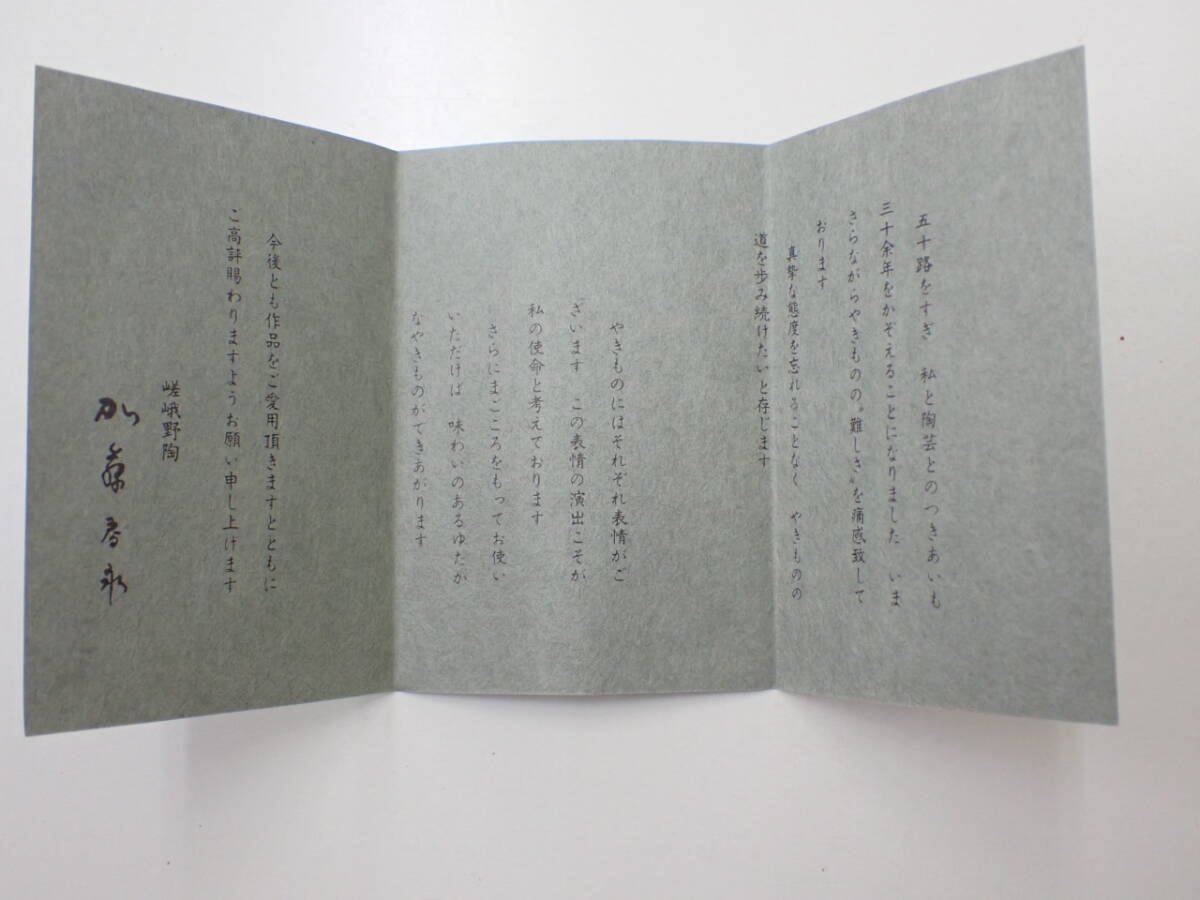 五十路をすぎ　私と陶芸とのつきあいも
三十余年をかぞえることになりました　いま
さらながらやきものの〝難しさ〟を痛感致して
おります
真摯な態度を忘れることなく　やきものの
道を歩み続けたいと存じます
やきものにはそれぞれ表情がご
ざいます　この表情の演出こそが
私の使命と考えております
さらにまごころをもってお使い
いただけば　味わいのあるゆたか
なやきものができあがります
今後とも作品をご愛用頂きますとともに
ご高評賜わりますようお願い申し上げます
嵯峨野陶
加藤春永